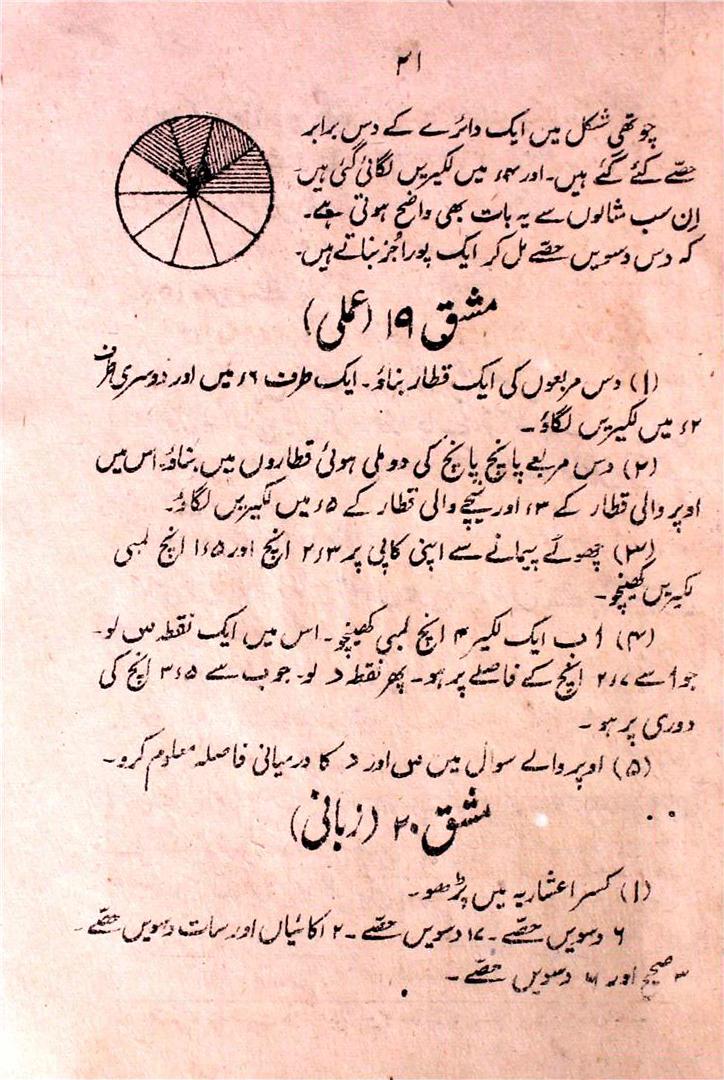 ۳۱
چوتھی شکل میں ایک دائرے کے دس برابر
حصّے کئے گئے ہیں۔ اور ۴ء میں لکیریں لگائی گئی ہیں۔
اِن سب مثالوں سے یہ بات بھی واضح ہوتی ہے۔
کہ دس دسویں حصّے مل کر ایک پورا جُز بناتے ہیں۔
مشق ۱۹ (عملی)
(۱) دس مربعوں کی ایک قطار بناؤ۔ ایک طرف ۶ء میں اور دوسری طرف
۲ء میں لکیریں لگاؤ۔
(۲) دس مربعے پانچ پانچ کی دو ملی ہوئی قطاروں میں بناؤ۔ اس میں
اوپر والی قطار کے ۳ء اور نیچے والی قطار کے ۵ء میں لکیریں لگاؤ۔
(۳) چھوٹے پیمانے سے اپنی کاپی پر ۲ء۳ انچ اور ۱ء۵ انچ لمبی
لکیریں کھینچو۔
(۴) ا ب ایک لکیر ۴ انچ لمبی کھینچو۔ اس میں ایک نقطہ س لو۔
جو ا سے ۲ء۷ انچ کے فاصلے پر ہو۔ پھر نقطہ د لو۔ جو ب سے ۳ء۵ انچ کی
دوری پر ہو۔
(۵) اوپر والے سوال میں س اور د کا درمیانی فاصلہ معلوم کرو۔
مشق ۲۰ (زبانی)
(۱) کسر اعشاریہ میں پڑھو۔
۶ دسویں حصّے۔ ۱۷ دسویں حصّے۔ ۲ اکائیاں اور سات دسویں حصّے۔
۳ صحیح اور دسویں حصّے۔